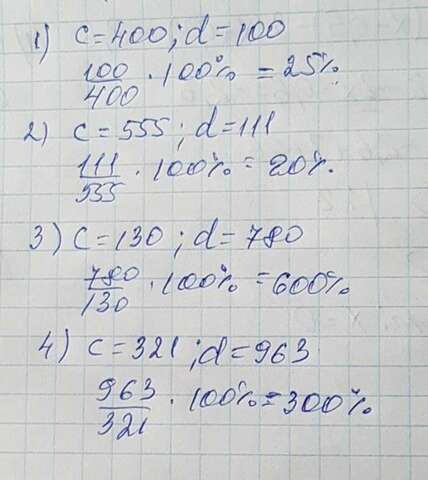 1) c=400; d=100
100/400 · 100% = 25%
2) c=555; d=111
111/555 · 100% = 20%.
3) c=130; d=780
780/130 · 100% = 600%
4) c=321; d=963
963/321 · 100% = 300%